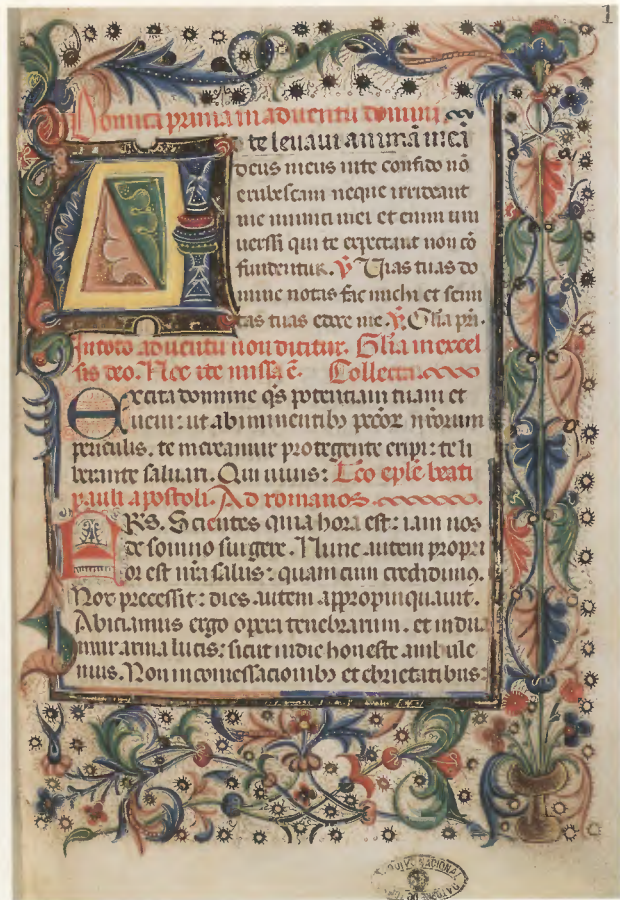 Domica prima in adventu domini
A te levavi animā meā
deus meus in te confido nō
erubescam neque irrideant
me inimici mei et enim uni
versi qui te expectant non cō
fundentur. ℣ Vias tuas do
mine notas fac michi et semi
tas tuas edoce me. ℣. Glia pri.
In toto adventu non dicitur. Glia in excel
sis deo. Nec ite missa ē. Collecta.
Excita domine qs potentiam tuam et
veni: ut ab iminentibꝫ pccōr nrorum
periculis. te mereamur protegente eripi: te li
berante salvari. Qui vivis: Lēo eple beati
pauli apostoli. Ad romanos.
FRS. Scientes quia hora est: iam nos
de somno surgere. Nunc autem propri
or est nrā salus: quam cum credidimꝯ.
Nox precessit: dies autem appropinquavit.
Abiciamus ergo opera tenebrarum. et indua
mur arma lucis: sicut in die honeste ambule
mus. Non in comessacionibꝫ et ebrietatibus:
NACIONAL